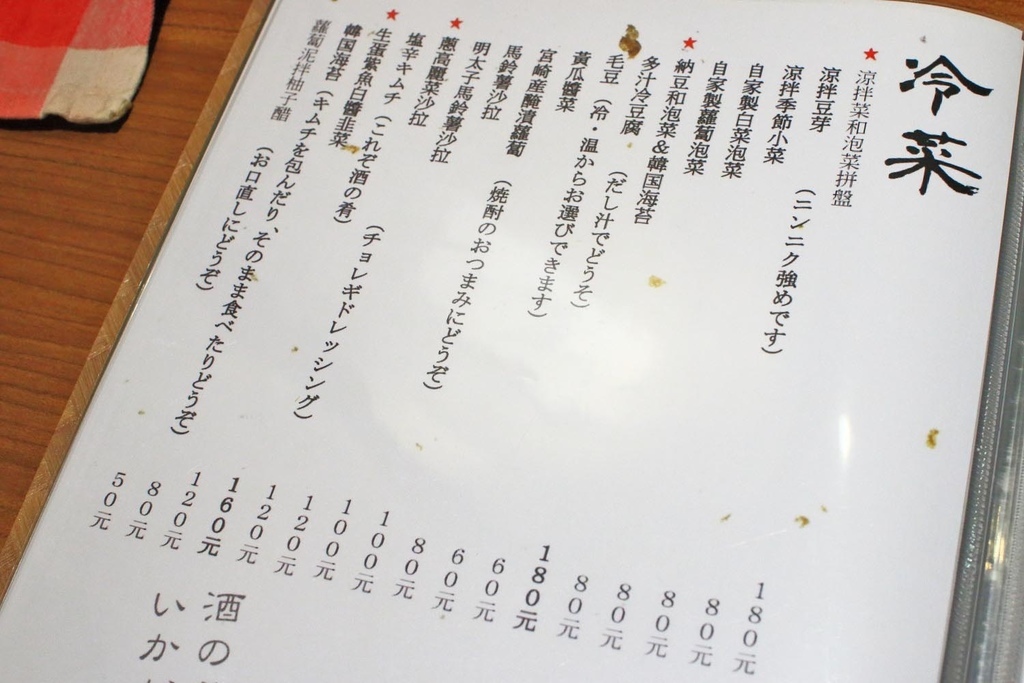 冷菜
★涼拌菜和泡菜拼盤 180元
涼拌豆芽 80元
涼拌季節小菜 (ニンニク強めです) 80元
自家製白菜泡菜 80元
自家製蘿蔔泡菜 80元
★納豆和泡菜&韓国海苔 180元
多汁冷豆腐 (だし汁でどうぞ) 60元
毛豆 (冷・温からお選びできます) 60元
黃瓜醬菜 80元
宮崎産醃漬蘿蔔 (焼酎のおつまみにどうぞ) 100元
馬鈴薯沙拉 100元
明太子馬鈴薯沙拉 120元
★蔥高麗菜沙拉 (チョレギドレッシング) 120元
塩辛キムチ (これぞ酒の肴) 160元
★生蛋紫魚白醬韭菜 120元
韓国海苔 (キムチを包んだり、そのまま食べたりどうぞ) 80元
蘿蔔泥拌柚子醋 (お口直しにどうぞ) 50元
酒の
いか